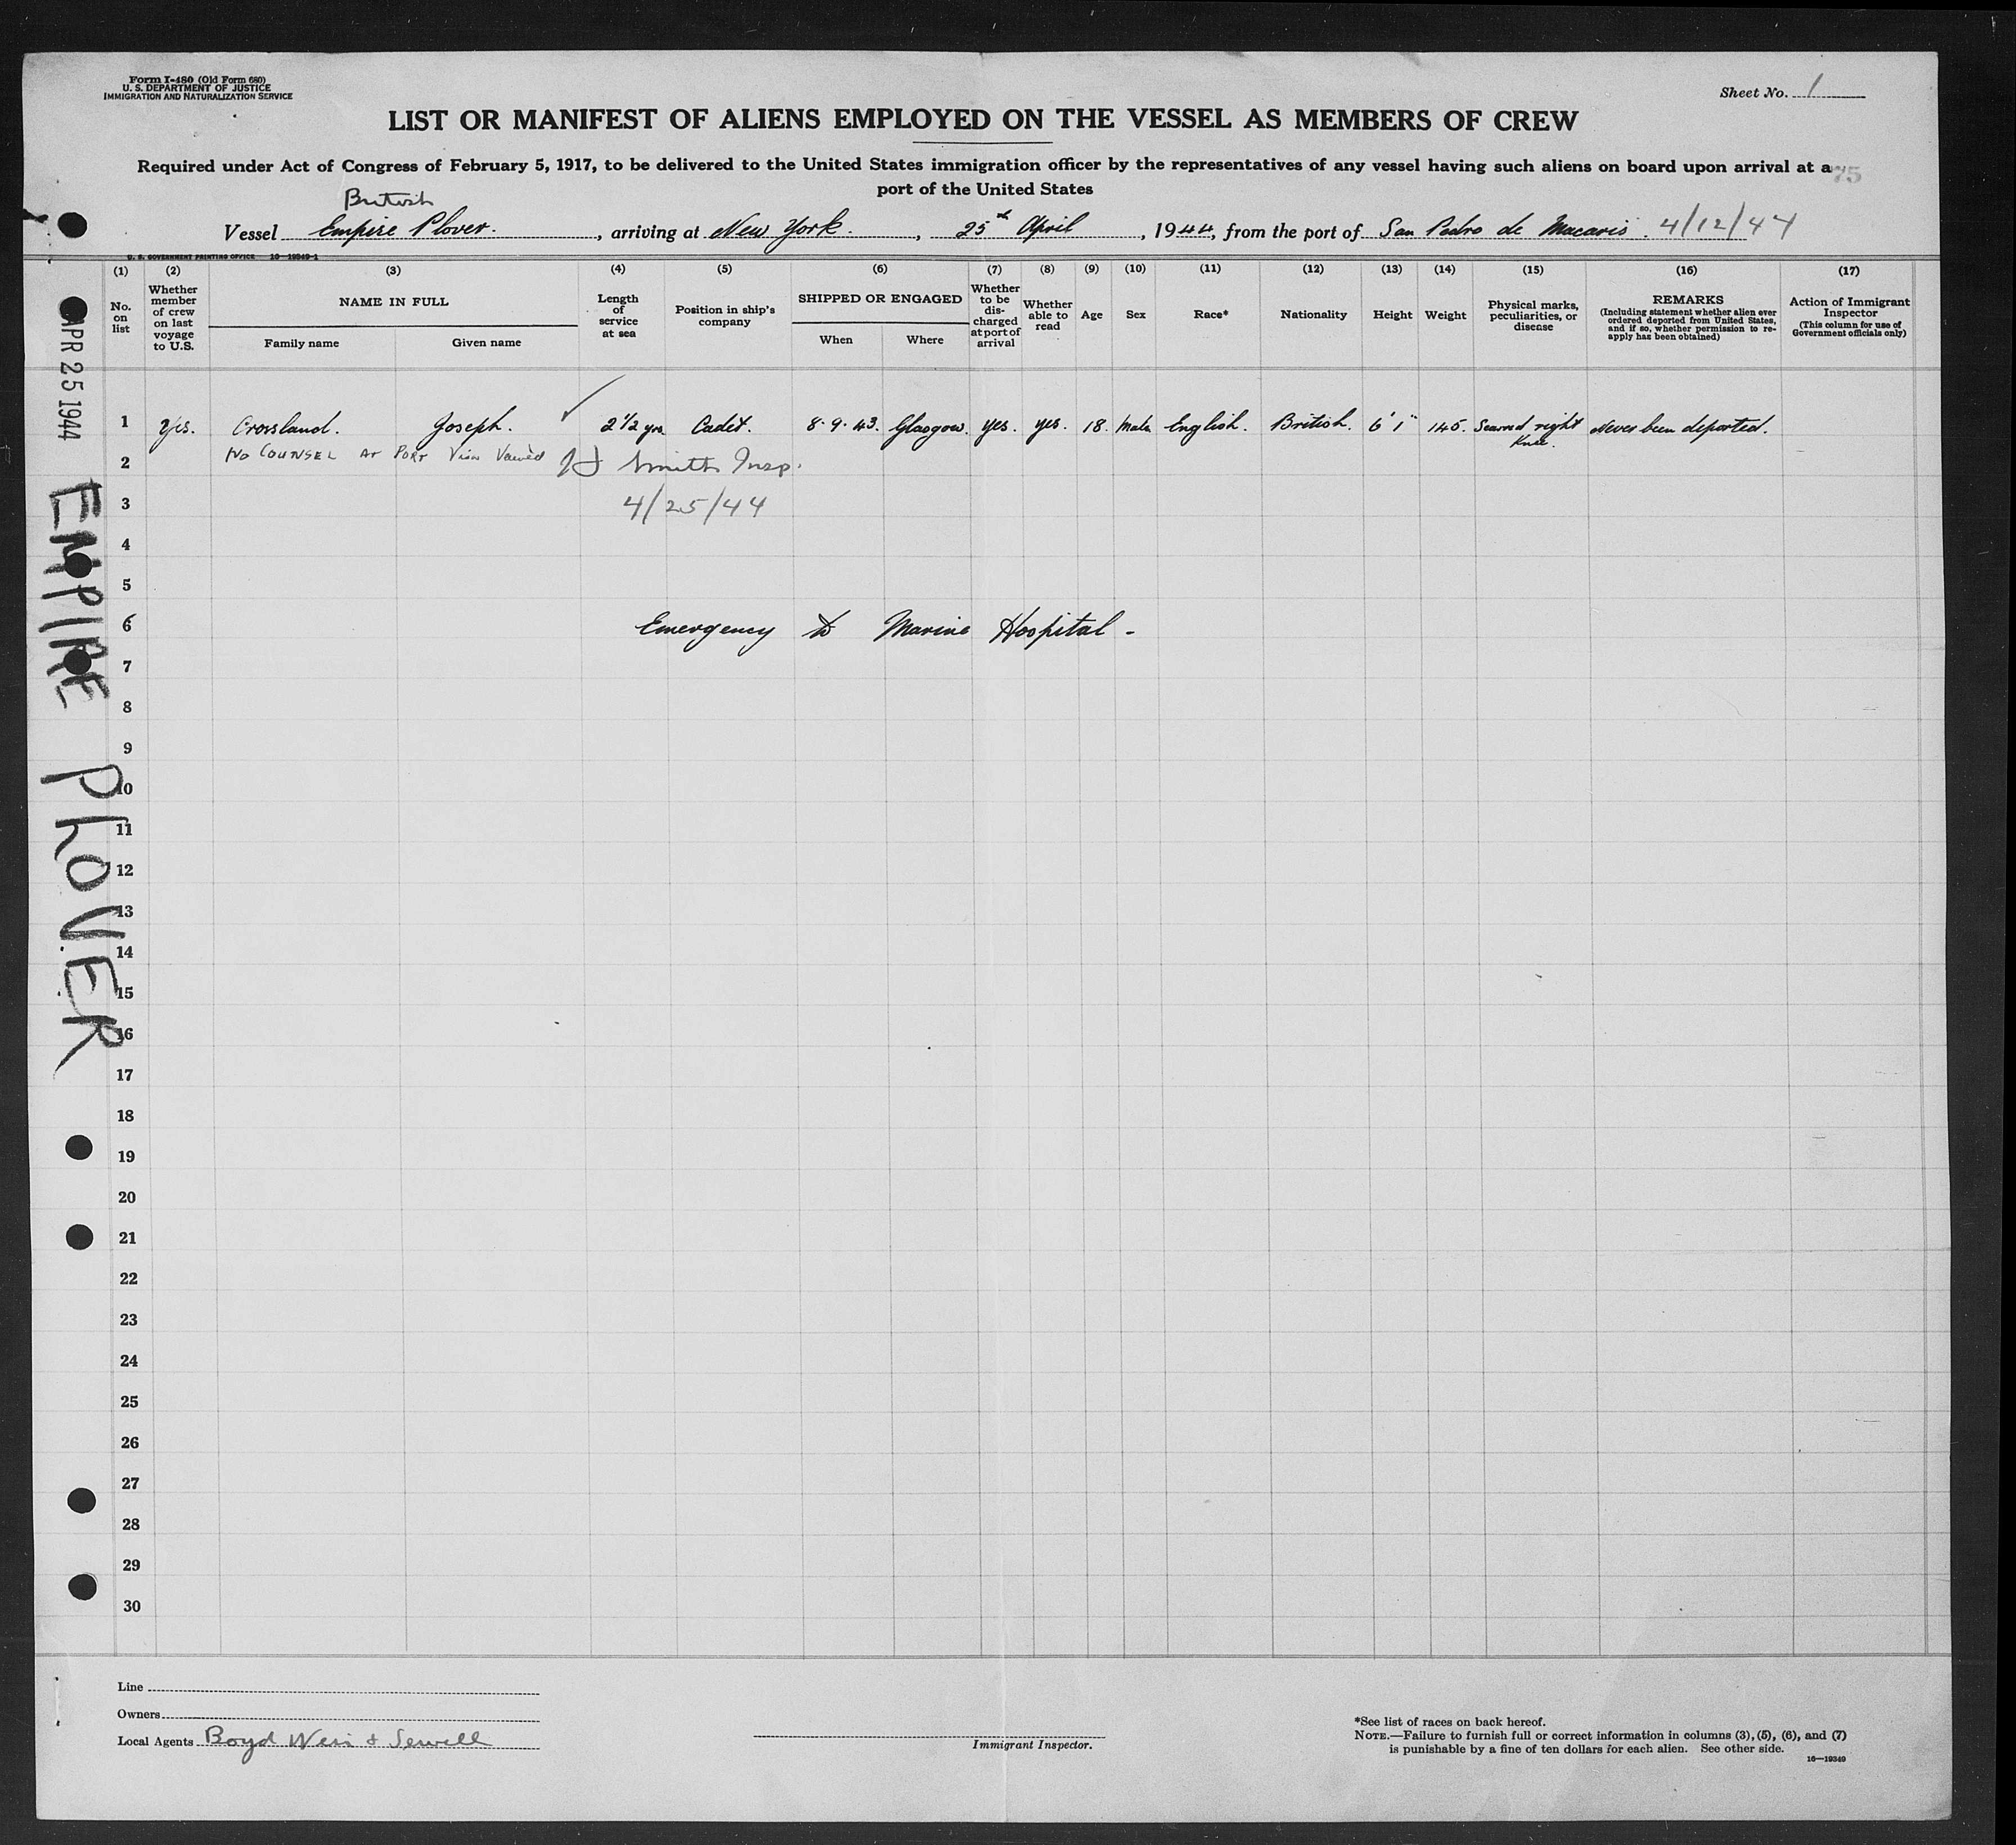 Form I-480 (Old Form 680)
U. S. DEPARTMENT OF JUSTICE
IMMIGRATION AND NATURALIZATION SERVICE
Sheet No. 1
LIST OR MANIFEST OF ALIENS EMPLOYED ON THE VESSEL AS MEMBERS OF CREW
Required under Act of Congress of February 5, 1917, to be delivered to the United States immigration officer by the representatives of any vessel having such aliens on board upon arrival at a
75
port of the United States
British
Vessel Empire Plover., arriving at New York., 25th April, 1944, from the port of San Pedro de Macaris. 4/12/44
U. S. GOVERNMENT PRINTING OFFICE 16—19349-1
(1) (2) (3) (4) (5) (6) (7) (8) (9) (10) (11) (12) (13) (14) (15) (16) (17)
No. on list
Whether member of crew on last voyage to U.S.
NAME IN FULL
Family name Given name
Length of service at sea
Position in ship's company
SHIPPED OR ENGAGED
When Where
Whether to be discharged at port of arrival
Whether able to read
Age
Sex
Race*
Nationality
Height
Weight
Physical marks, peculiarities, or disease
REMARKS
(Including statement whether alien ever ordered deported from United States, and if so, whether permission to reapply has been obtained)
Action of Immigrant Inspector
(This column for use of Government officials only)
1 Yes. Crossland. Joseph. ✓ 2½ yrs Cadet. 8.9.43. Glasgow. Yes. Yes. 18. Male English. British. 6'1" 145. Scarred right Knee. Never been deported.
NO COUNSEL AT PORT Visa
2 Smith Insp.
3 4/25/44
4
5
6 Emergency to Marine Hospital -
7
8
9
10
11
12
13
14
15
16
17
18
19
20
21
22
23
24
25
26
27
28
29
30
APR 25 1944
EMPIRE PLOVER
Line
Owners
Local Agents Boyd Weir & Sewell
Immigrant Inspector.
*See list of races on back hereof.
NOTE.—Failure to furnish full or correct information in columns (3), (5), (6), and (7)
is punishable by a fine of ten dollars for each alien. See other side.
16—19349